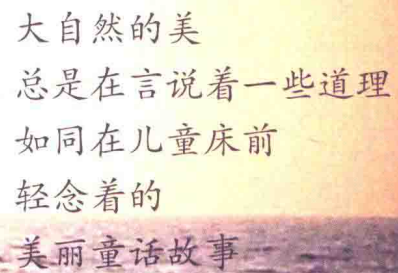 大自然的美
总是在言说着一些道理
如同在儿童床前
轻念着的
美丽童话故事